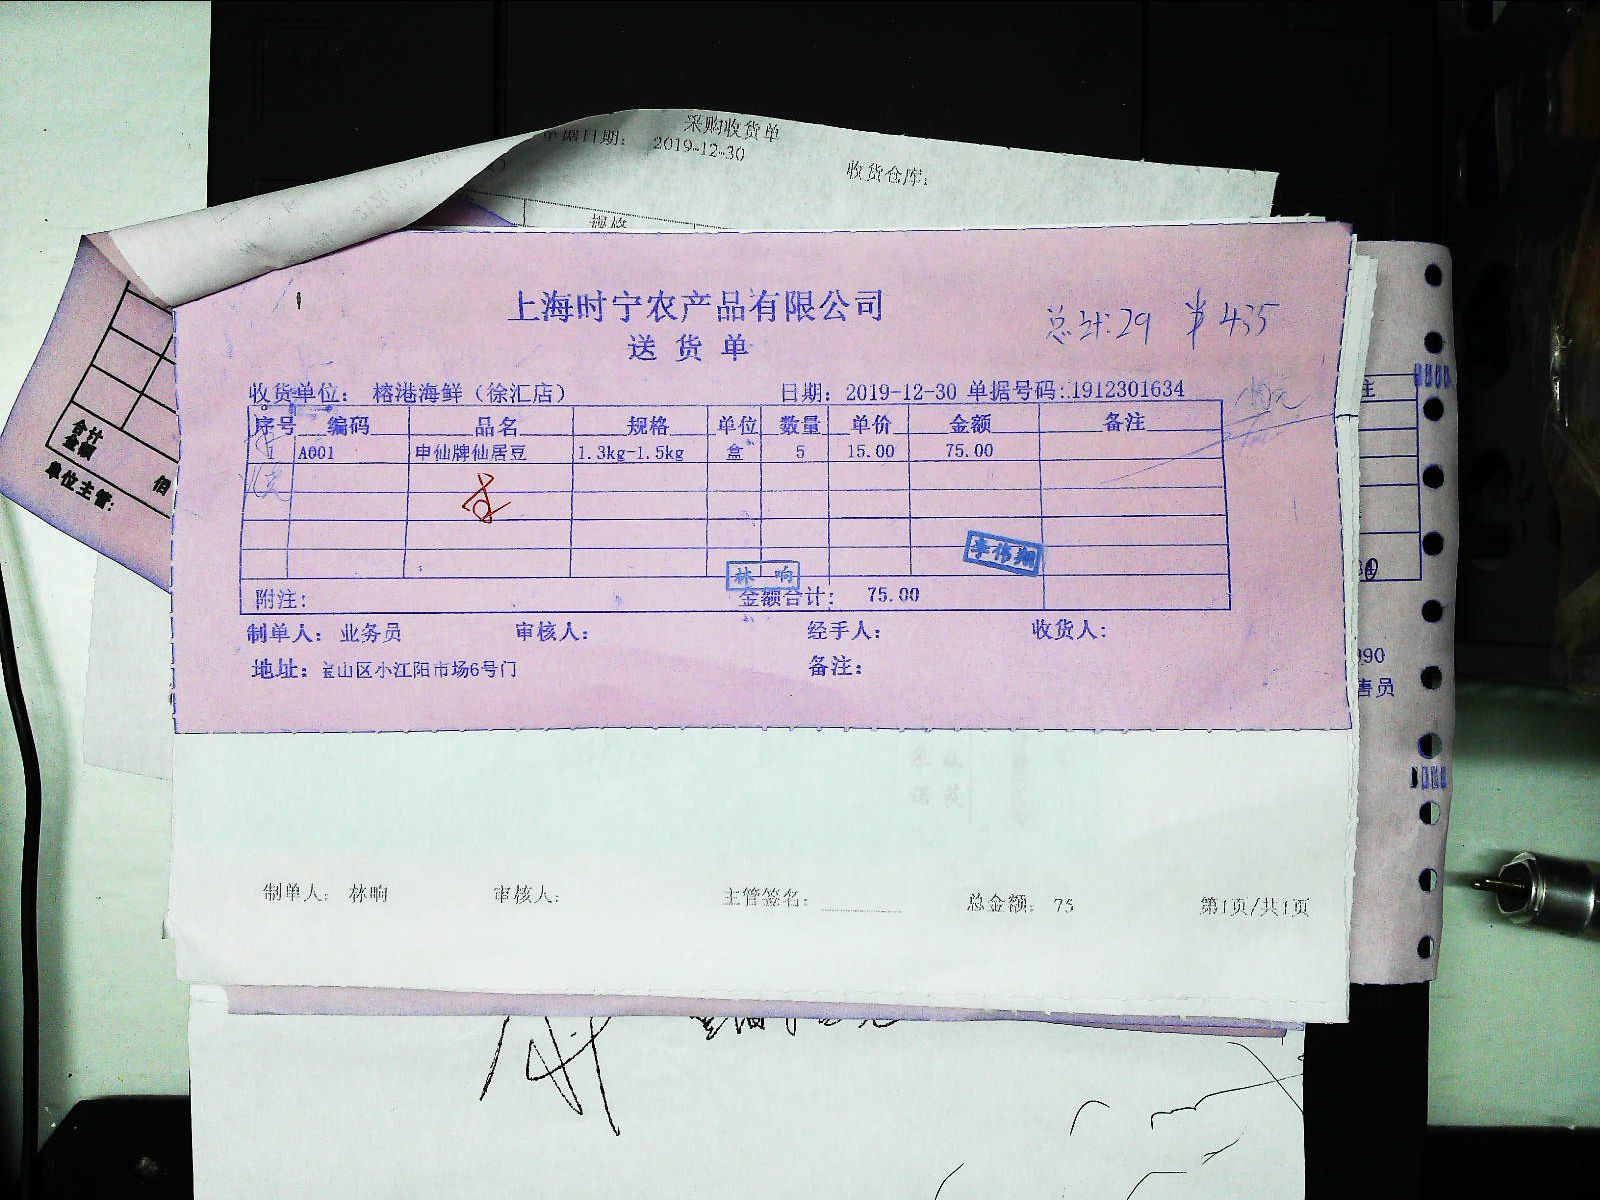 采购收货单
单据日期: 2019-12-30
收货仓库:
规格
上海时宁农产品有限公司
送货单
总计:29 ¥435
收货单位: 榕港海鲜(徐汇店) 日期: 2019-12-30 单据号码:1912301634
序号 编码 品名 规格 单位 数量 单价 金额 备注
1 A001 申仙牌仙居豆 1.3kg-1.5kg 盒 5 15.00 75.00
李伟翔
林响
附注: 金额合计: 75.00
制单人: 业务员 审核人: 经手人: 收货人:
地址: 宝山区小江阳市场6号门 备注:
合计
金额 佰
单位主管:
注
990
售员
制单人: 林响 审核人: 主管签名: 总金额: 75 第1页/共1页